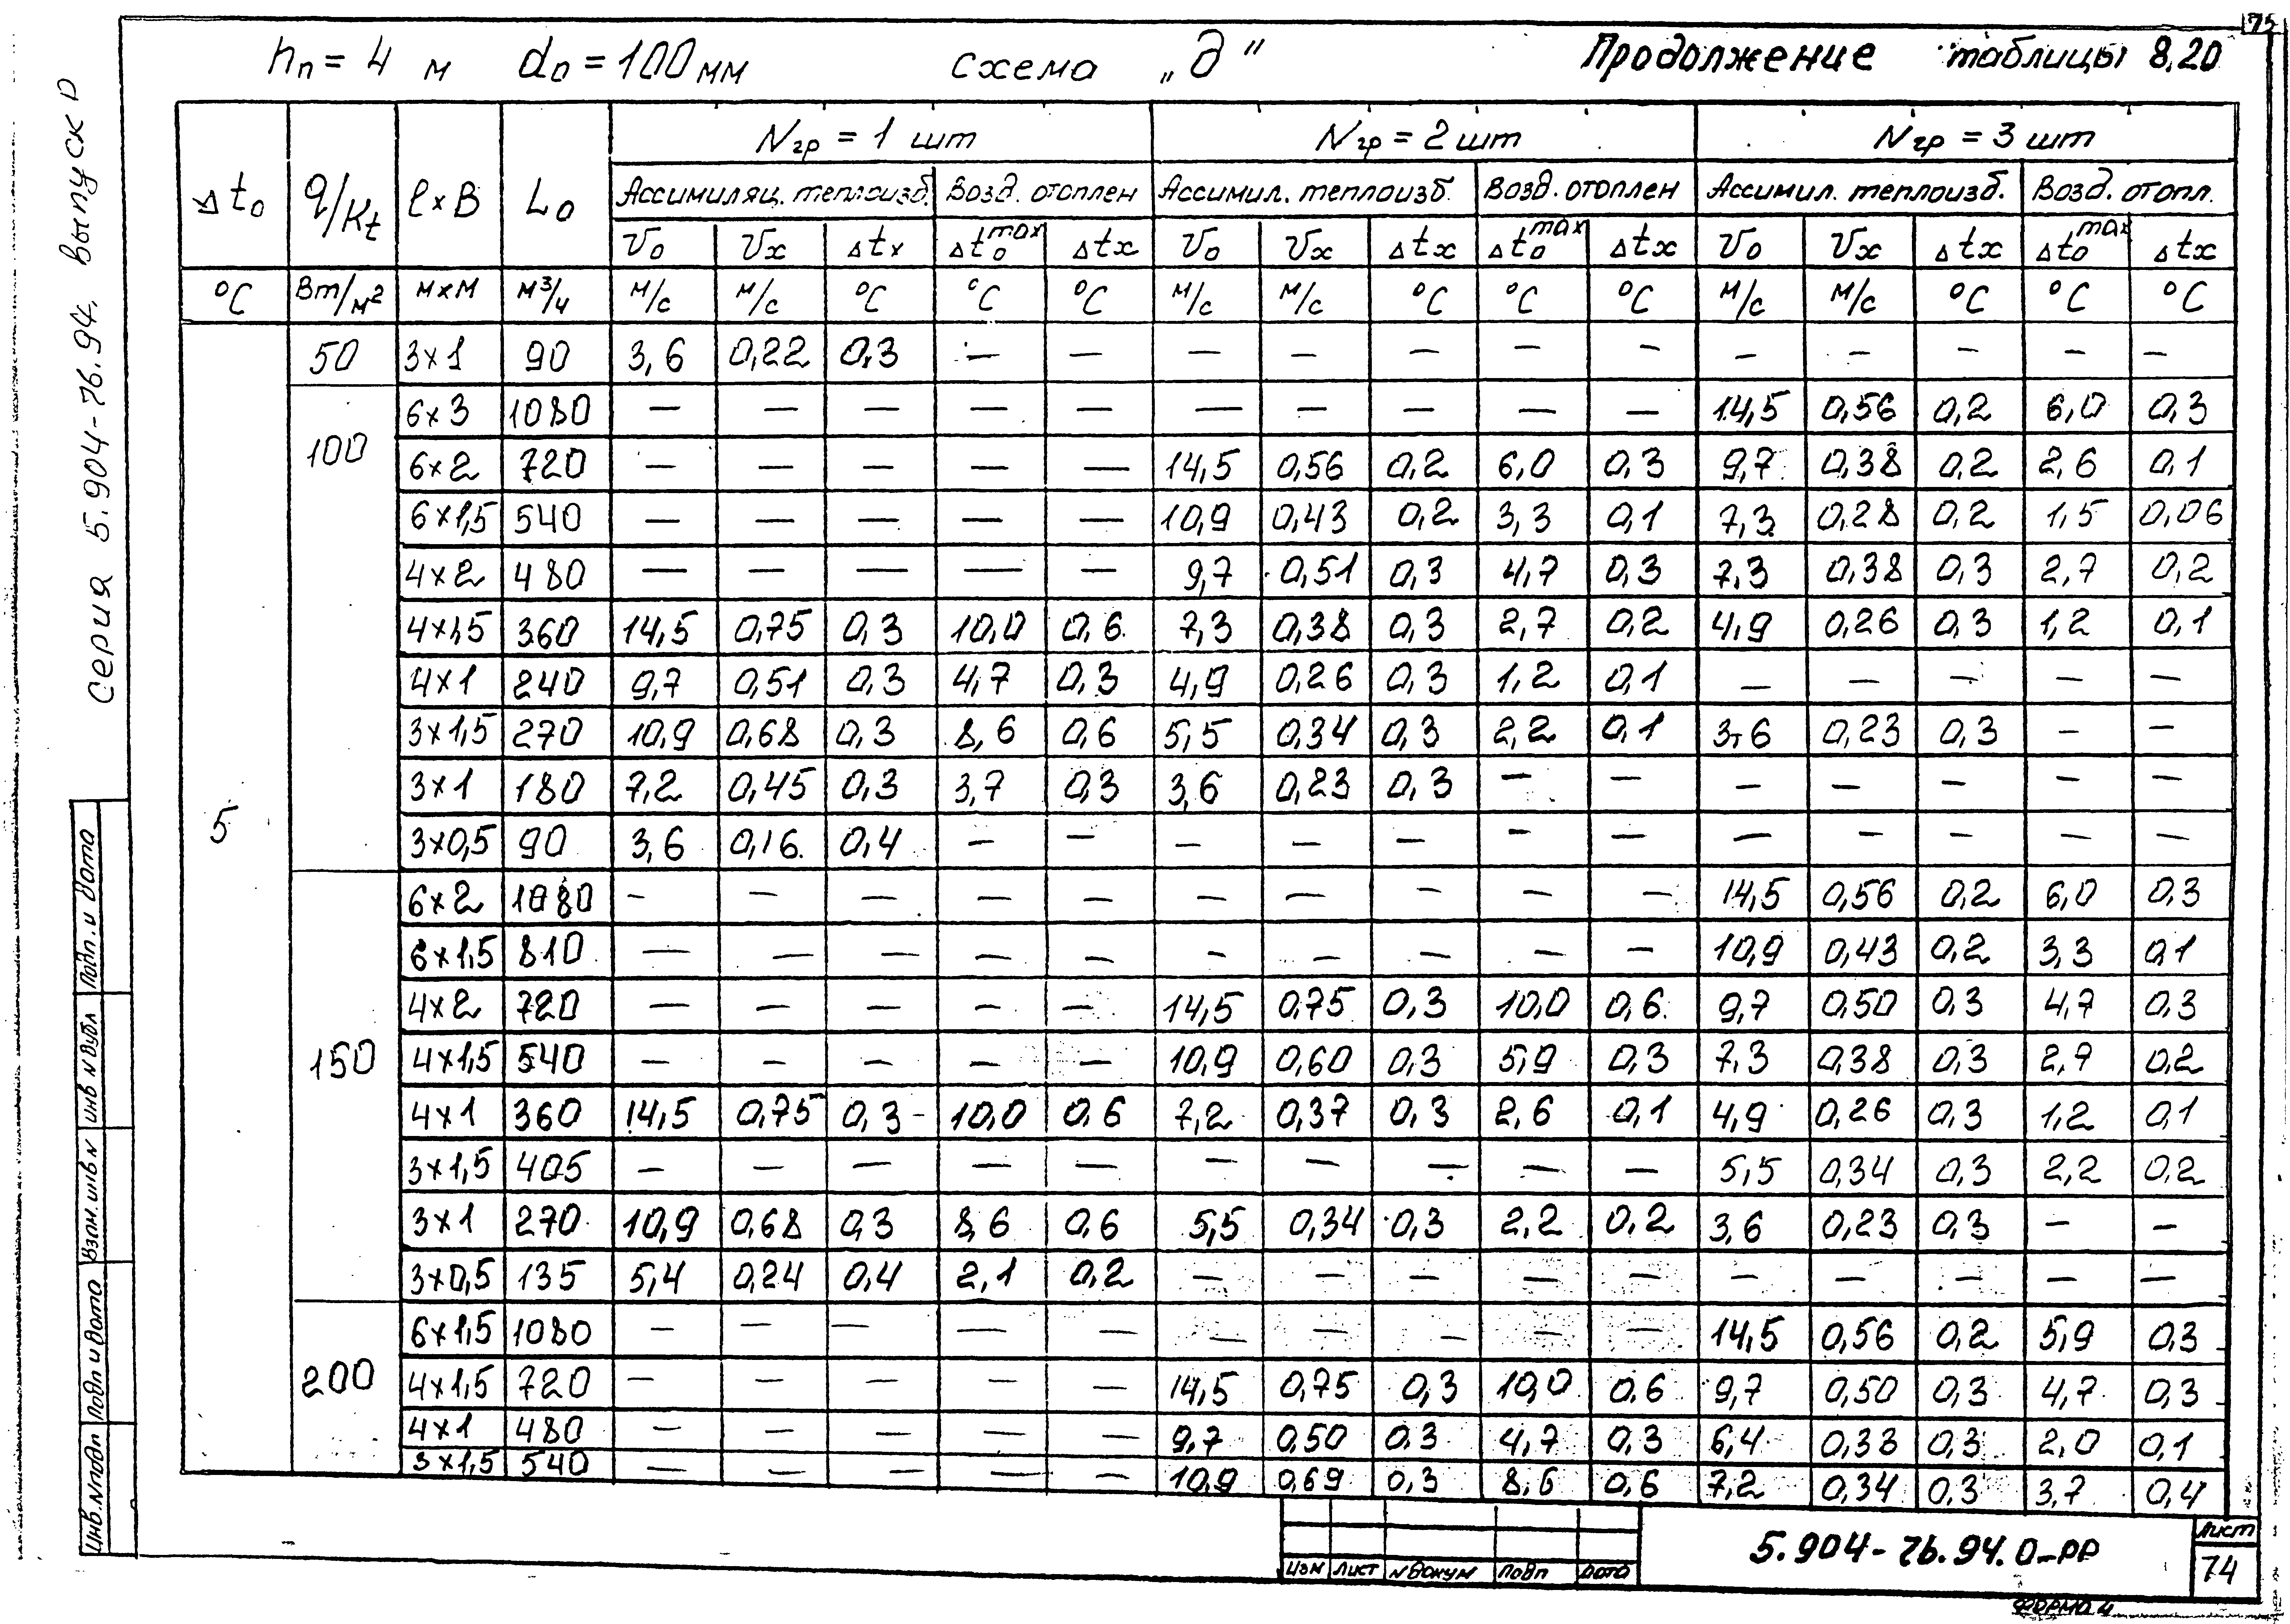 75
hп = 4 м d₀ = 100 мм схема „д" Продолжение таблицы 8.20
серия 5.904-76.94. выпуск 0
Δt₀ q/Kt l×B L₀ Nгр = 1 шт Nгр = 2 шт Nгр = 3 шт
Ассимиляц. теплоизб. Возд. отоплен Ассимил. теплоизб. Возд. отоплен Ассимил. теплоизб. Возд. отопл.
V₀ Vx Δtx Δt₀max Δtx V₀ Vx Δtx Δt₀max Δtx V₀ Vx Δtx Δt₀max Δtx
°C Вт/м² м×м м³/ч м/с м/с °C °C °C м/с м/с °C °C °C м/с м/с °C °C °C
5
50 3×1 90 3,6 0,22 0,3 — — — — — — — — — — — —
100 6×3 1080 — — — — — — — — — — 14,5 0,56 0,2 6,0 0,3
6×2 720 — — — — — 14,5 0,56 0,2 6,0 0,3 9,7 0,38 0,2 2,6 0,1
6×1,5 540 — — — — — 10,9 0,43 0,2 3,3 0,1 7,3 0,28 0,2 1,5 0,06
4×2 480 — — — — — 9,7 0,51 0,3 4,7 0,3 7,3 0,38 0,3 2,7 0,2
4×1,5 360 14,5 0,75 0,3 10,0 0,6 7,3 0,38 0,3 2,7 0,2 4,9 0,26 0,3 1,2 0,1
4×1 240 9,7 0,51 0,3 4,7 0,3 4,9 0,26 0,3 1,2 0,1 — — — — —
3×1,5 270 10,9 0,68 0,3 8,6 0,6 5,5 0,34 0,3 2,2 0,1 3,6 0,23 0,3 — —
3×1 180 7,2 0,45 0,3 3,7 0,3 3,6 0,23 0,3 — — — — — — —
3×0,5 90 3,6 0,16 0,4 — — — — — — — — — — — —
150 6×2 1080 — — — — — — — — — — 14,5 0,56 0,2 6,0 0,3
6×1,5 810 — — — — — — — — — — 10,9 0,43 0,2 3,3 0,1
4×2 720 — — — — — 14,5 0,75 0,3 10,0 0,6 9,7 0,50 0,3 4,7 0,3
4×1,5 540 — — — — — 10,9 0,60 0,3 5,9 0,3 7,3 0,38 0,3 2,7 0,2
4×1 360 14,5 0,75 0,3 10,0 0,6 7,2 0,37 0,3 2,6 0,1 4,9 0,26 0,3 1,2 0,1
3×1,5 405 — — — — — — — — — — 5,5 0,34 0,3 2,2 0,2
3×1 270 10,9 0,68 0,3 8,6 0,6 5,5 0,34 0,3 2,2 0,2 3,6 0,23 0,3 — —
3×0,5 135 5,4 0,24 0,4 2,1 0,2 — — — — — — — — — —
200 6×1,5 1080 — — — — — — — — — — 14,5 0,56 0,2 5,9 0,3
4×1,5 720 — — — — — 14,5 0,75 0,3 10,0 0,6 9,7 0,50 0,3 4,7 0,3
4×1 480 — — — — — 9,7 0,50 0,3 4,7 0,3 6,4 0,33 0,3 2,0 0,1
3×1,5 540 — — — — — 10,9 0,69 0,3 8,6 0,6 7,2 0,34 0,3 3,7 0,4
Инв. № подп Подп и дата Взам. инв № инв № дубл Подп. и дата
Изм Лист № докум Подп Дата
5.904-76.94.0-РР
Лист
74
Форма 4